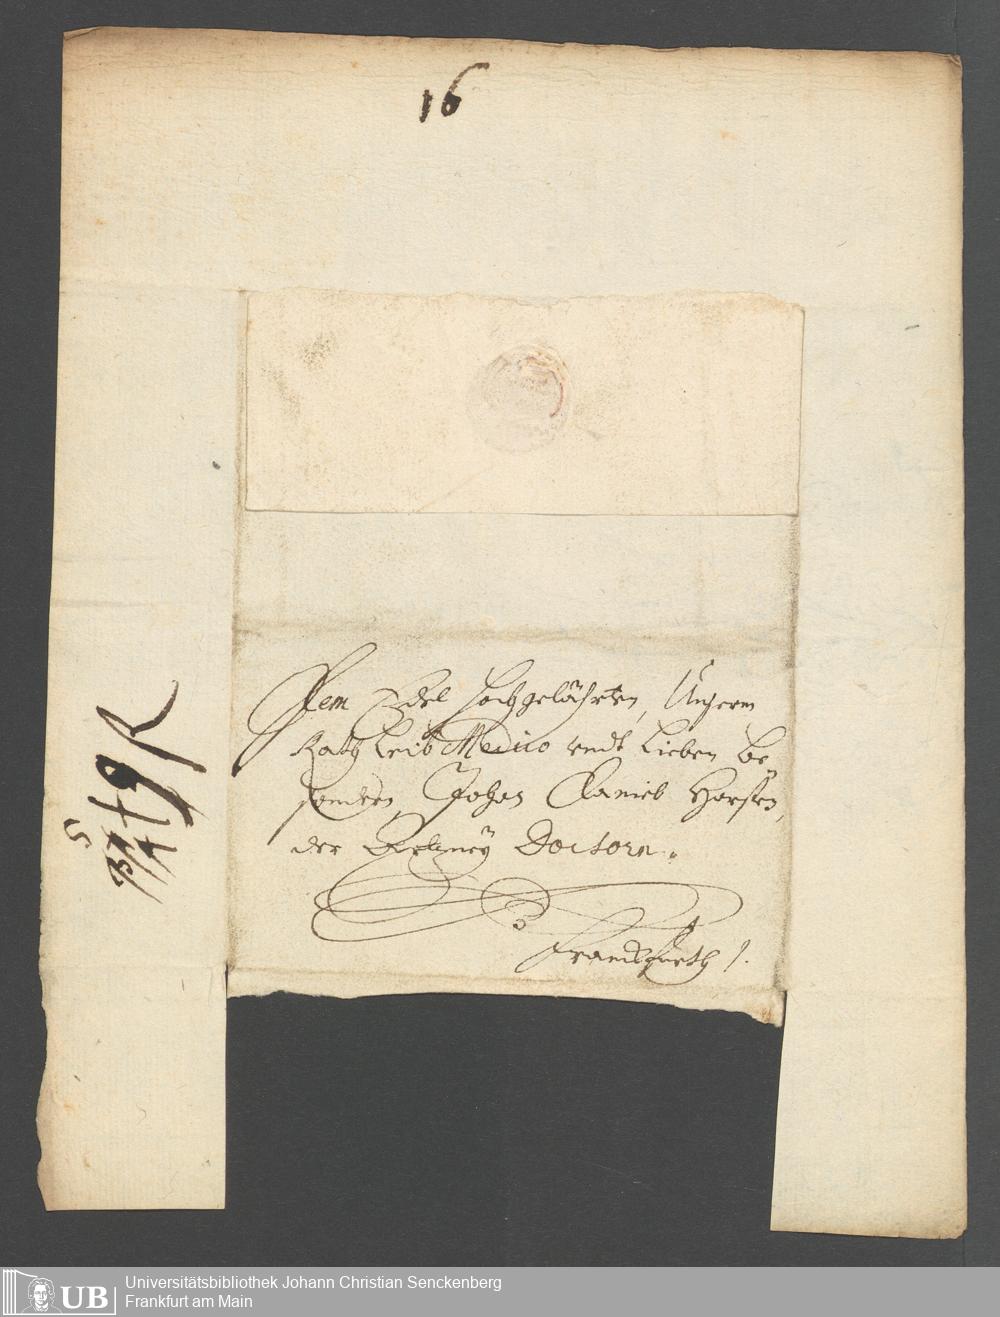 16
Dem Edel hochgelährten, Unserm
Rath Leib Medico undt Lieben Be
sondern, Johan Daniel Horsten,
der Artzney Doctorn.
Franckfurth /.
UB
Universitätsbibliothek Johann Christian Senckenberg
Frankfurt am Main